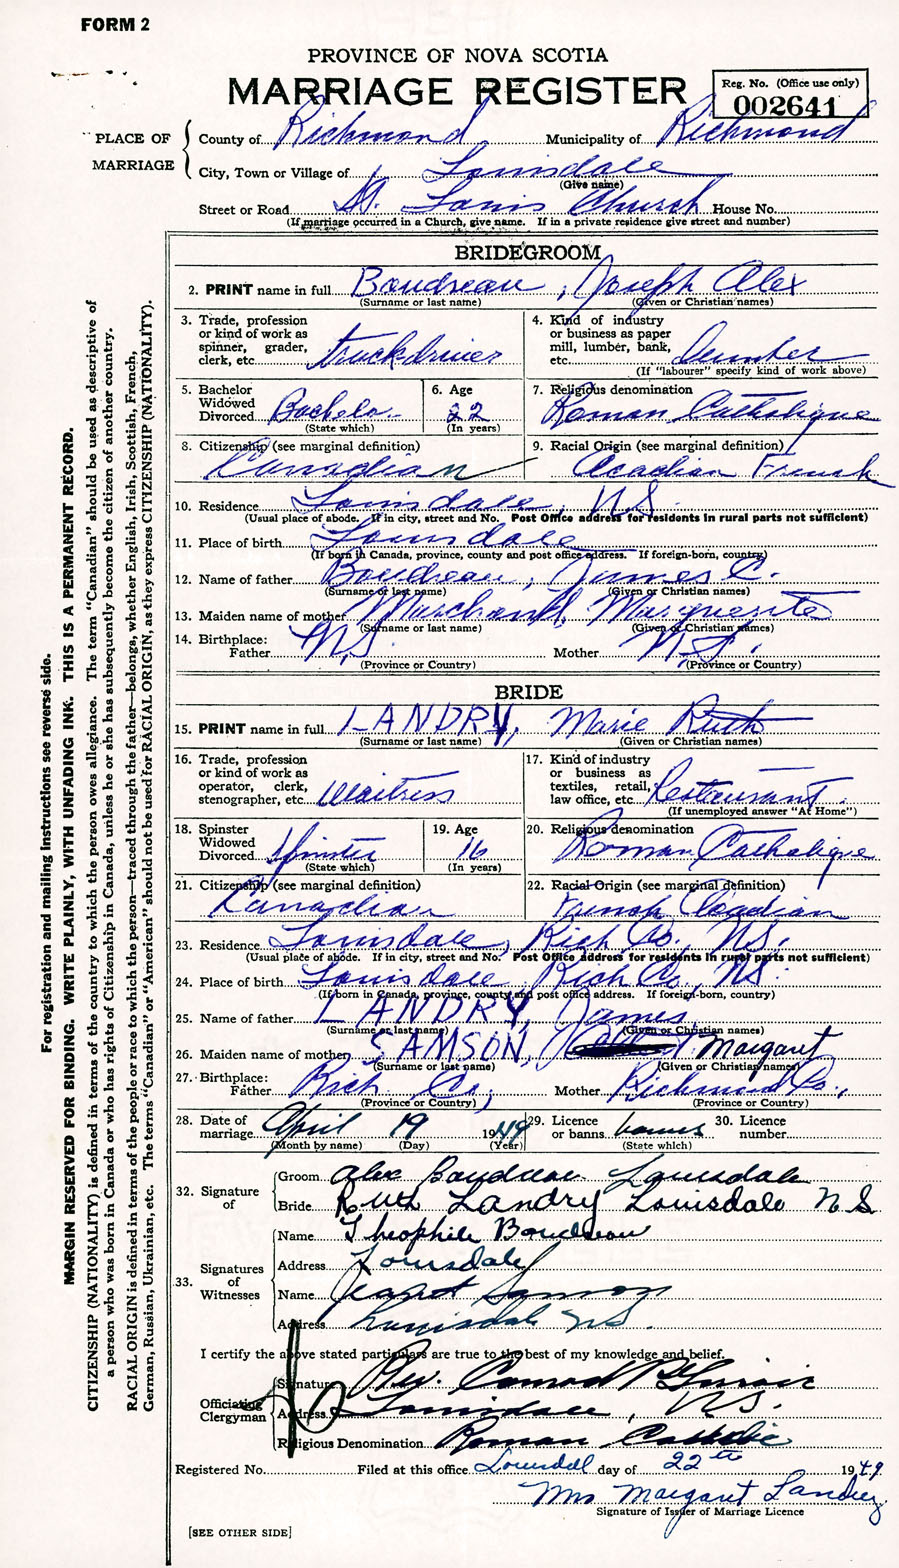 FORM 2
PROVINCE OF NOVA SCOTIA
MARRIAGE REGISTER
Reg. No. (Office use only)
002641
PLACE OF MARRIAGE
County of Richmond Municipality of Richmond
City, Town or Village of Louisdale
(Give name)
Street or Road St. Louis Church House No.
(If marriage occurred in a Church, give name. If in a private residence give street and number)
BRIDEGROOM
2. PRINT name in full Boudreau, Joseph Alex
(Surname or last name) (Given or Christian names)
3. Trade, profession or kind of work as spinner, grader, clerk, etc. truckdriver
4. Kind of industry or business as paper mill, lumber, bank, etc. Lumber
(If "labourer" specify kind of work above)
5. Bachelor Widowed Divorced Bachelor
(State which)
6. Age 22
(In years)
7. Religious denomination
Roman Catholique
8. Citizenship (see marginal definition)
Canadian
9. Racial Origin (see marginal definition)
Acadian French
10. Residence Louisdale, N.S.
(Usual place of abode. If in city, street and No. Post Office address for residents in rural parts not sufficient)
11. Place of birth Louisdale
(If born in Canada, province, county and post office address. If foreign-born, country)
12. Name of father Boudreau, James C.
(Surname or last name) (Given or Christian names)
13. Maiden name of mother Marchand, Marguerite
(Surname or last name) (Given or Christian names)
14. Birthplace:
Father N.S. Mother N.S.
(Province or Country) (Province or Country)
BRIDE
15. PRINT name in full LANDRY, Marie Ruth
(Surname or last name) (Given or Christian names)
16. Trade, profession or kind of work as operator, clerk, stenographer, etc. Waitress
17. Kind of industry or business as textiles, retail, law office, etc. Restaurant
(If unemployed answer "At Home")
18. Spinster Widowed Divorced Spinster
(State which)
19. Age 16
(In years)
20. Religious denomination
Roman Catholique
21. Citizenship (see marginal definition)
Canadian
22. Racial Origin (see marginal definition)
French Acadian
23. Residence Louisdale, Rich Co., N.S.
(Usual place of abode. If in city, street and No. Post Office address for residents in rural parts not sufficient)
24. Place of birth Louisdale Rich Co, N.S.
(If born in Canada, province, county and post office address. If foreign-born, country)
25. Name of father LANDRY, James
(Surname or last name) (Given or Christian names)
26. Maiden name of mother SAMSON, Margaret
(Surname or last name) (Given or Christian names)
27. Birthplace:
Father Rich Co, Mother Richmond Co.,
(Province or Country) (Province or Country)
28. Date of marriage April 19 1949
(Month by name) (Day) (Year)
29. Licence or banns banns
(State which)
30. Licence number
32. Signature of
Groom Alex Boudreau Louisdale
Bride Ruth Landry Louisdale N S
33. Signatures of Witnesses
Name Theophile Boudreau
Address Louisdale
Name Samson
Address Louisdale N.S.
I certify the above stated particulars are true to the best of my knowledge and belief.
Officiating Clergyman
Signature Rev. Conrad
Address Louisdale, N.S.
Religious Denomination Roman Catholic
Registered No. Filed at this office Louisdal day of 22th 1949
Mrs Margaret Landry
Signature of Issuer of Marriage Licence
[SEE OTHER SIDE]
For registration and mailing instructions see reverse side.
MARGIN RESERVED FOR BINDING. WRITE PLAINLY, WITH UNFADING INK. THIS IS A PERMANENT RECORD.
CITIZENSHIP (NATIONALITY) is defined in terms of the country to which the person owes allegiance. The term "Canadian" should be used as descriptive of
a person who was born in Canada or who has rights of Citizenship in Canada, unless he or she has subsequently become the citizen of another country.
RACIAL ORIGIN is defined in terms of the people or race to which the person—traced through the father—belongs, whether English, Irish, Scottish, French,
German, Russian, Ukrainian, etc. The terms "Canadian" or "American" should not be used for RACIAL ORIGIN, as they express CITIZENSHIP (NATIONALITY).